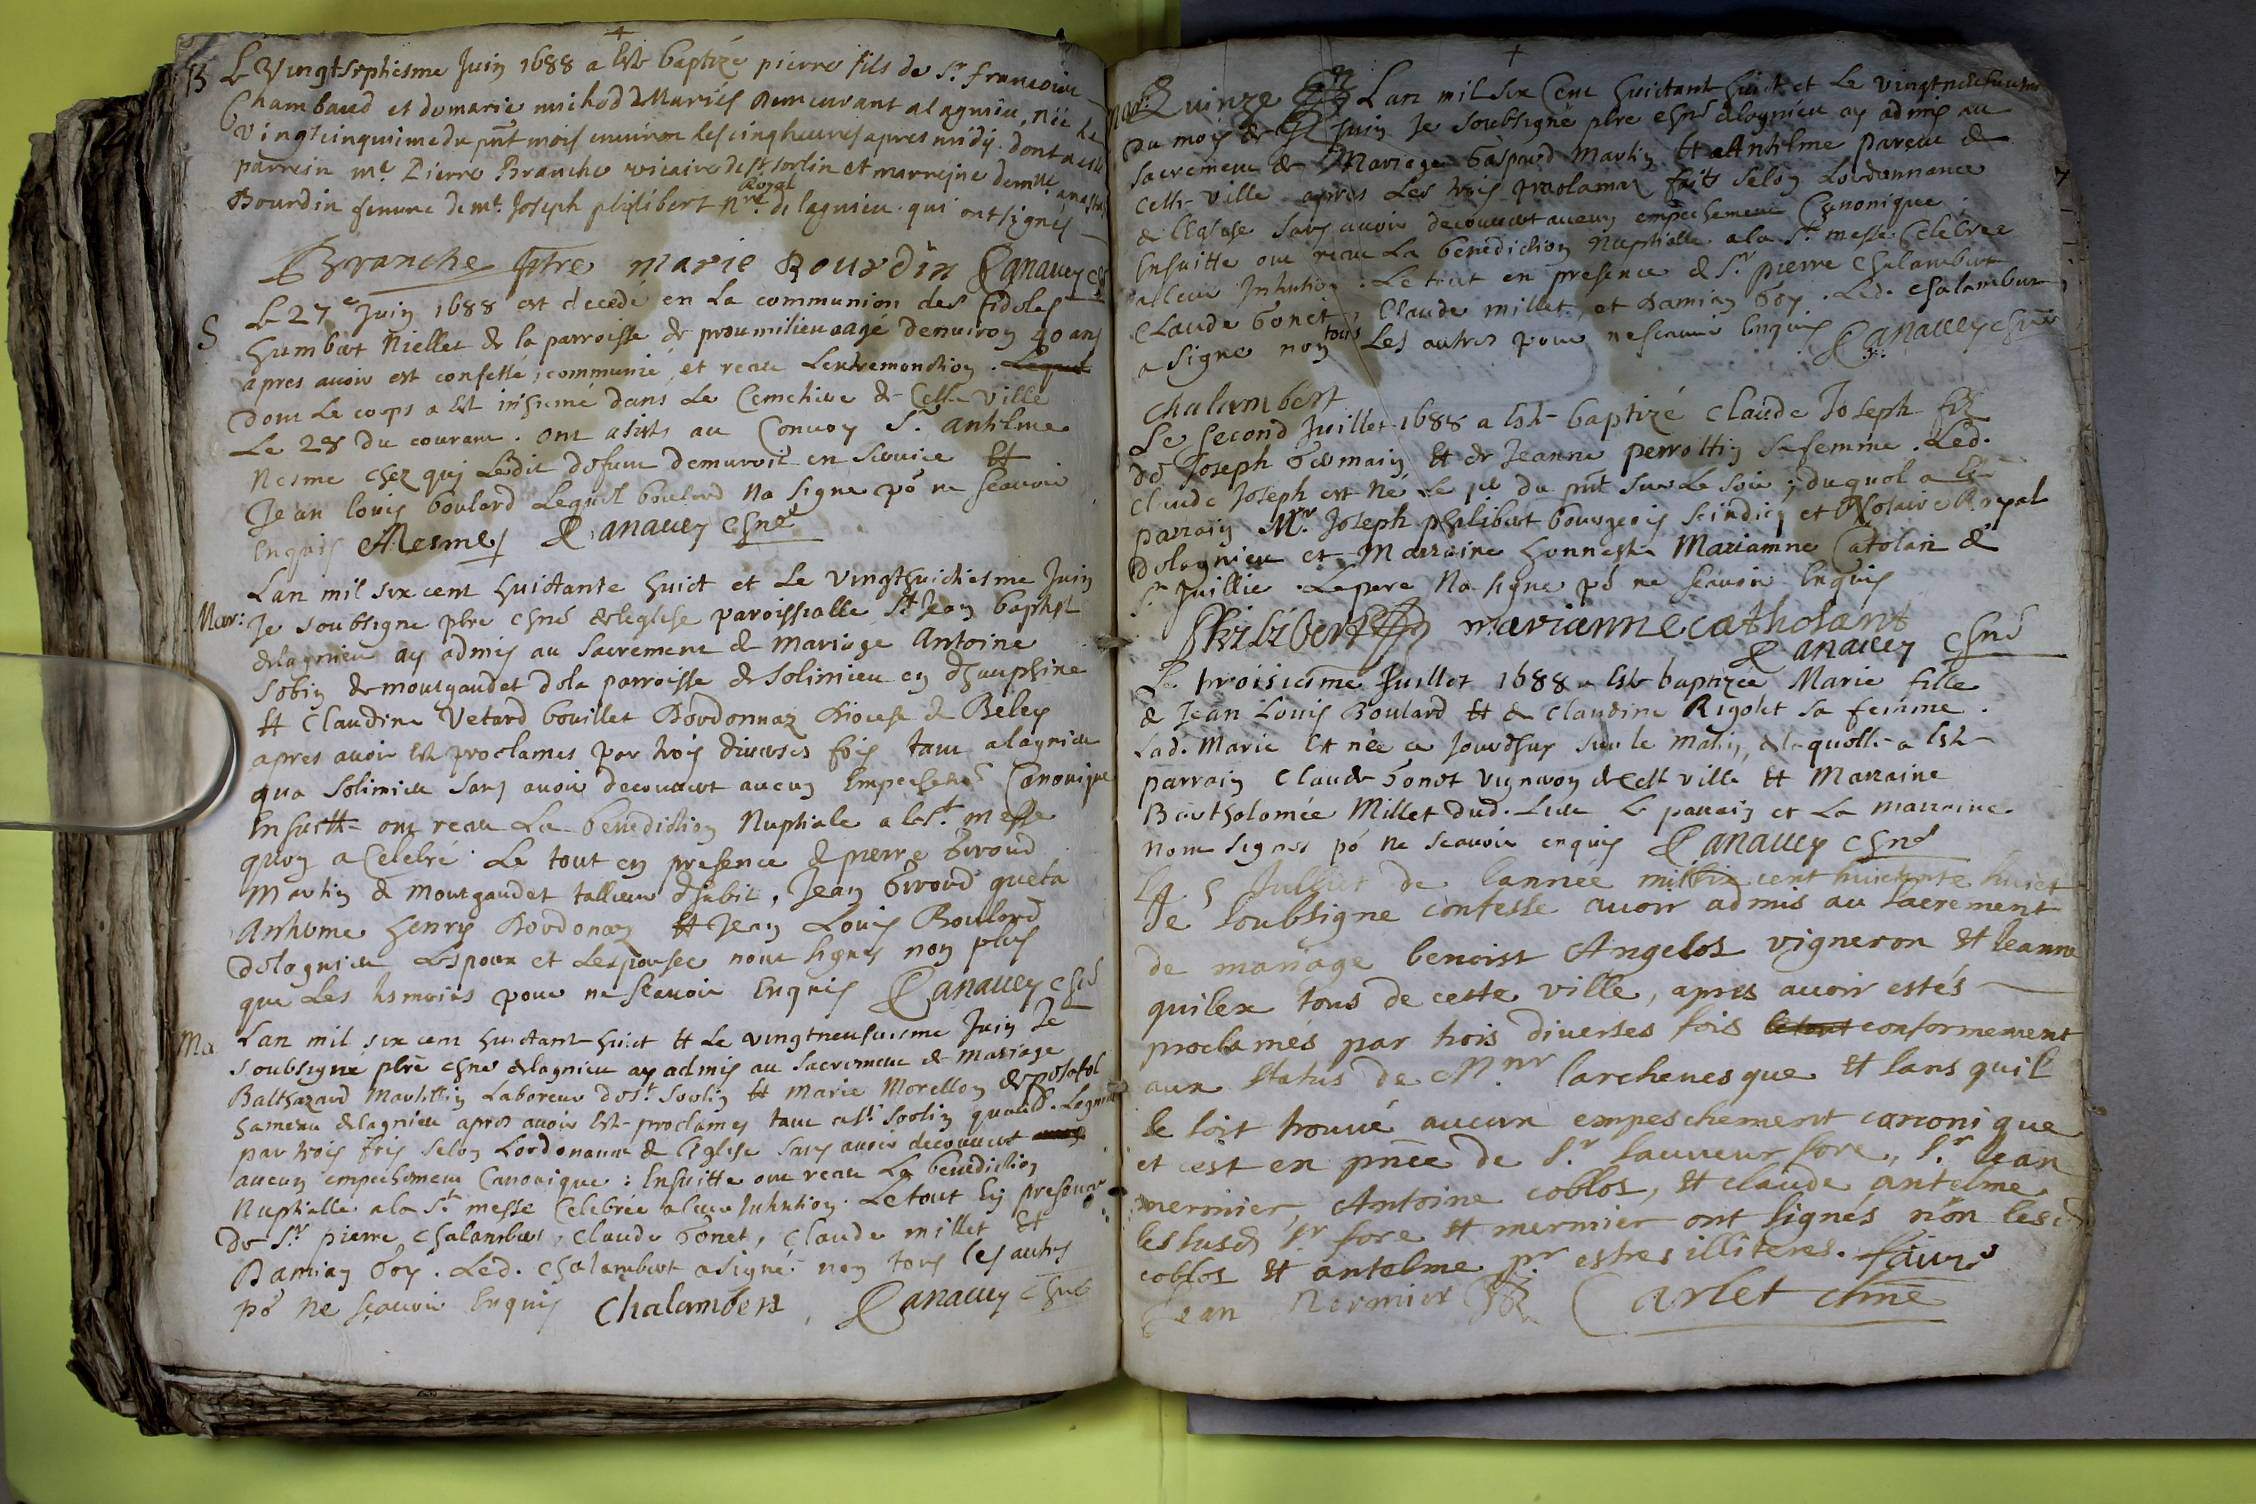 +
B Le Vingtseptiesme Juin 1688 a esté baptizé pierre fils de Sr. francois
Chambaud et de marie michod Mariés Demeurant a lagnieu, née le
vingtcinquiesme du pnt mois environ les cinq heures apres midy. dont a esté
parrein me. Pierre Branche vicaire de St. sorlin et marreine demlle
Bourdin femme de me. Joseph philibert nre. Royal de lagnieu. qui ont signés
Branche ptre marie Bourdin Canavey
S Le 27e Juin 1688 est decedé en la communion des fideles
humbert Niellet de la parroisse de proumilieu aagé denviron 40 ans
apres avoir est confessé, communié, et receu Lextremonction. Lequel
dont Le corps a Est inhumé dans Le Cemetiere de Cette ville
Le 28 du courant. ont asisté au Convoy Sr. anthelme
Nesme chez qui Ledit defunt demuroit en service Et
Jean louis boulard Lequel boulard Na signé po. ne scavoir
Enquis Nesme Canavey chne
Mar: Lan mil six cent huictante huict et Le vingthuictiesme Juin
Je soubsigne pbre chne de leglise paroissialle St Jean baptist
de lagnieu ay admis au sacrement de Mariage Antoine
Sobin de montgaudet de la parroisse de Solimieu en dhauphine
Et Claudine Vetard bouillet Dordonnaz Diocese de Beley
apres avoir Esté proclames par trois diverses fois tant a lagnieu
qua Solimieu sans avoir decouvert aucun Empechemt Canonique
Ensuitte ont receu La benediction Nuptiale a la Ste. messe
quon a Celebré. Le tout en presence de pierre Giroud
Martin de montgaudet tallieur dhabit, Jean Giroud
Anthelme henry Dordonnaz Et Jean Louis Boulard
de lagnieu Lespoux et Lespousee nont signes non plus
que Les tesmoins pour ne scavoir Enquis Canavey chne
Ma Lan mil six cent huictante huict Et Le vingtneufviesme Juin Je
soubsigné pbre chne de lagnieu ay admis au sacrement de mariage
Balthazard Martin Laboureur de St. Sorlin Et Marie Morellon de posafol
hameau de lagnieu apres avoir Esté proclames tant a St. Sorlin quaud. Lagnieu
par trois fois selon Lordonnance de lEglise sans avoir decouvert
aucun empechement Canonique: Ensuitte ont receu La benediction
Nuptialle a la Ste messe Celebrée a leur Intention. Le tout En presence
de Sr. pierre chalambert, claude Gonet, claude millet Et
Damian Goy. Led. chalambert a signé non tous les autres
po. Ne scavoir Enquis Chalambert, Canavey chne
+
Mar: Quinze Lan mil six Cent huictant huict et Le vingtneufviesme
du mois de Juin Je soubsigné pbre chne de lagnieu ay admis au
sacrement de Mariage Gaspard Martin Et Anthelme pareni de
cette ville apres Les trois proclamaz faits selon Lordonnance
de lEglise sans avoir decouvert aucun empechement Canonique
Ensuitte ont receu La benediction Nuptialle a la Ste. messe Celebree
a leur Intention: Le tout en presence de Sr. pierre chalambert
claude Gonet, claude millet, et Damian Goy. Led. chalambert
a signe non tous Les autres pour ne scavoir Enquis Canavey chne
chalambert
Le second Juillet 1688 a esté baptizé claude Joseph fils
de Joseph Germain Et de Jeanne perrottin sa femme. Led.
Claude Joseph est Né Le pr. du pnt sur Le soir; duquel a Esté
parrain Mr. Joseph philibert bourgeois scindicq et Notaire Royal
de lagnieu et Marraine honneste Marianne Catolan de
St. Juillie. Le pere Na signe po. ne scavoir Enquis
Philibert marianne catholans
Canavey chne
Le troisiesme Juillet 1688 a esté baptizée Marie fille
de Jean Louis Boulard Et de Claudine Rigolet sa femme.
Lad. Marie Est née ce Jourdhuy sur le matin, de laquelle a Esté
parrain claude Gonet vigneron de Cette ville Et Marraine
Bartholomée Millet dud. Lieu Le parrain et La marraine
nont signes po. Ne scavoir enquis Canavey chne
Le 5 Julliet de lannée mil six cent huictante huict
Je soubsigne confesse avoir admis au sacrement
de mariage benoist Angelos vigneron Et Jeanne
quilex tous de cette ville, apres avoir estés
proclamés par trois diverses fois le tout conformement
aux status de Mgnr larchevesque Et sans quil
se soit trouvé aucun empeschement canonique
et cest en pnce de Sr. sauveur fore, Sr. Jean
mermier, Antoine coblos, Et claude antelme
les susd. Sr fore Et mermier ont signés non lesd.
coblos Et antelme pr estres illiteres. faure
Jean Mermier Carlet chne